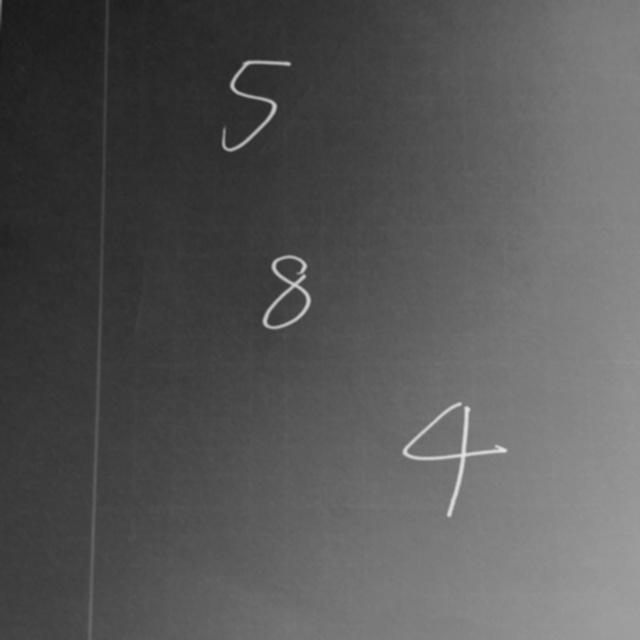 5
8
4